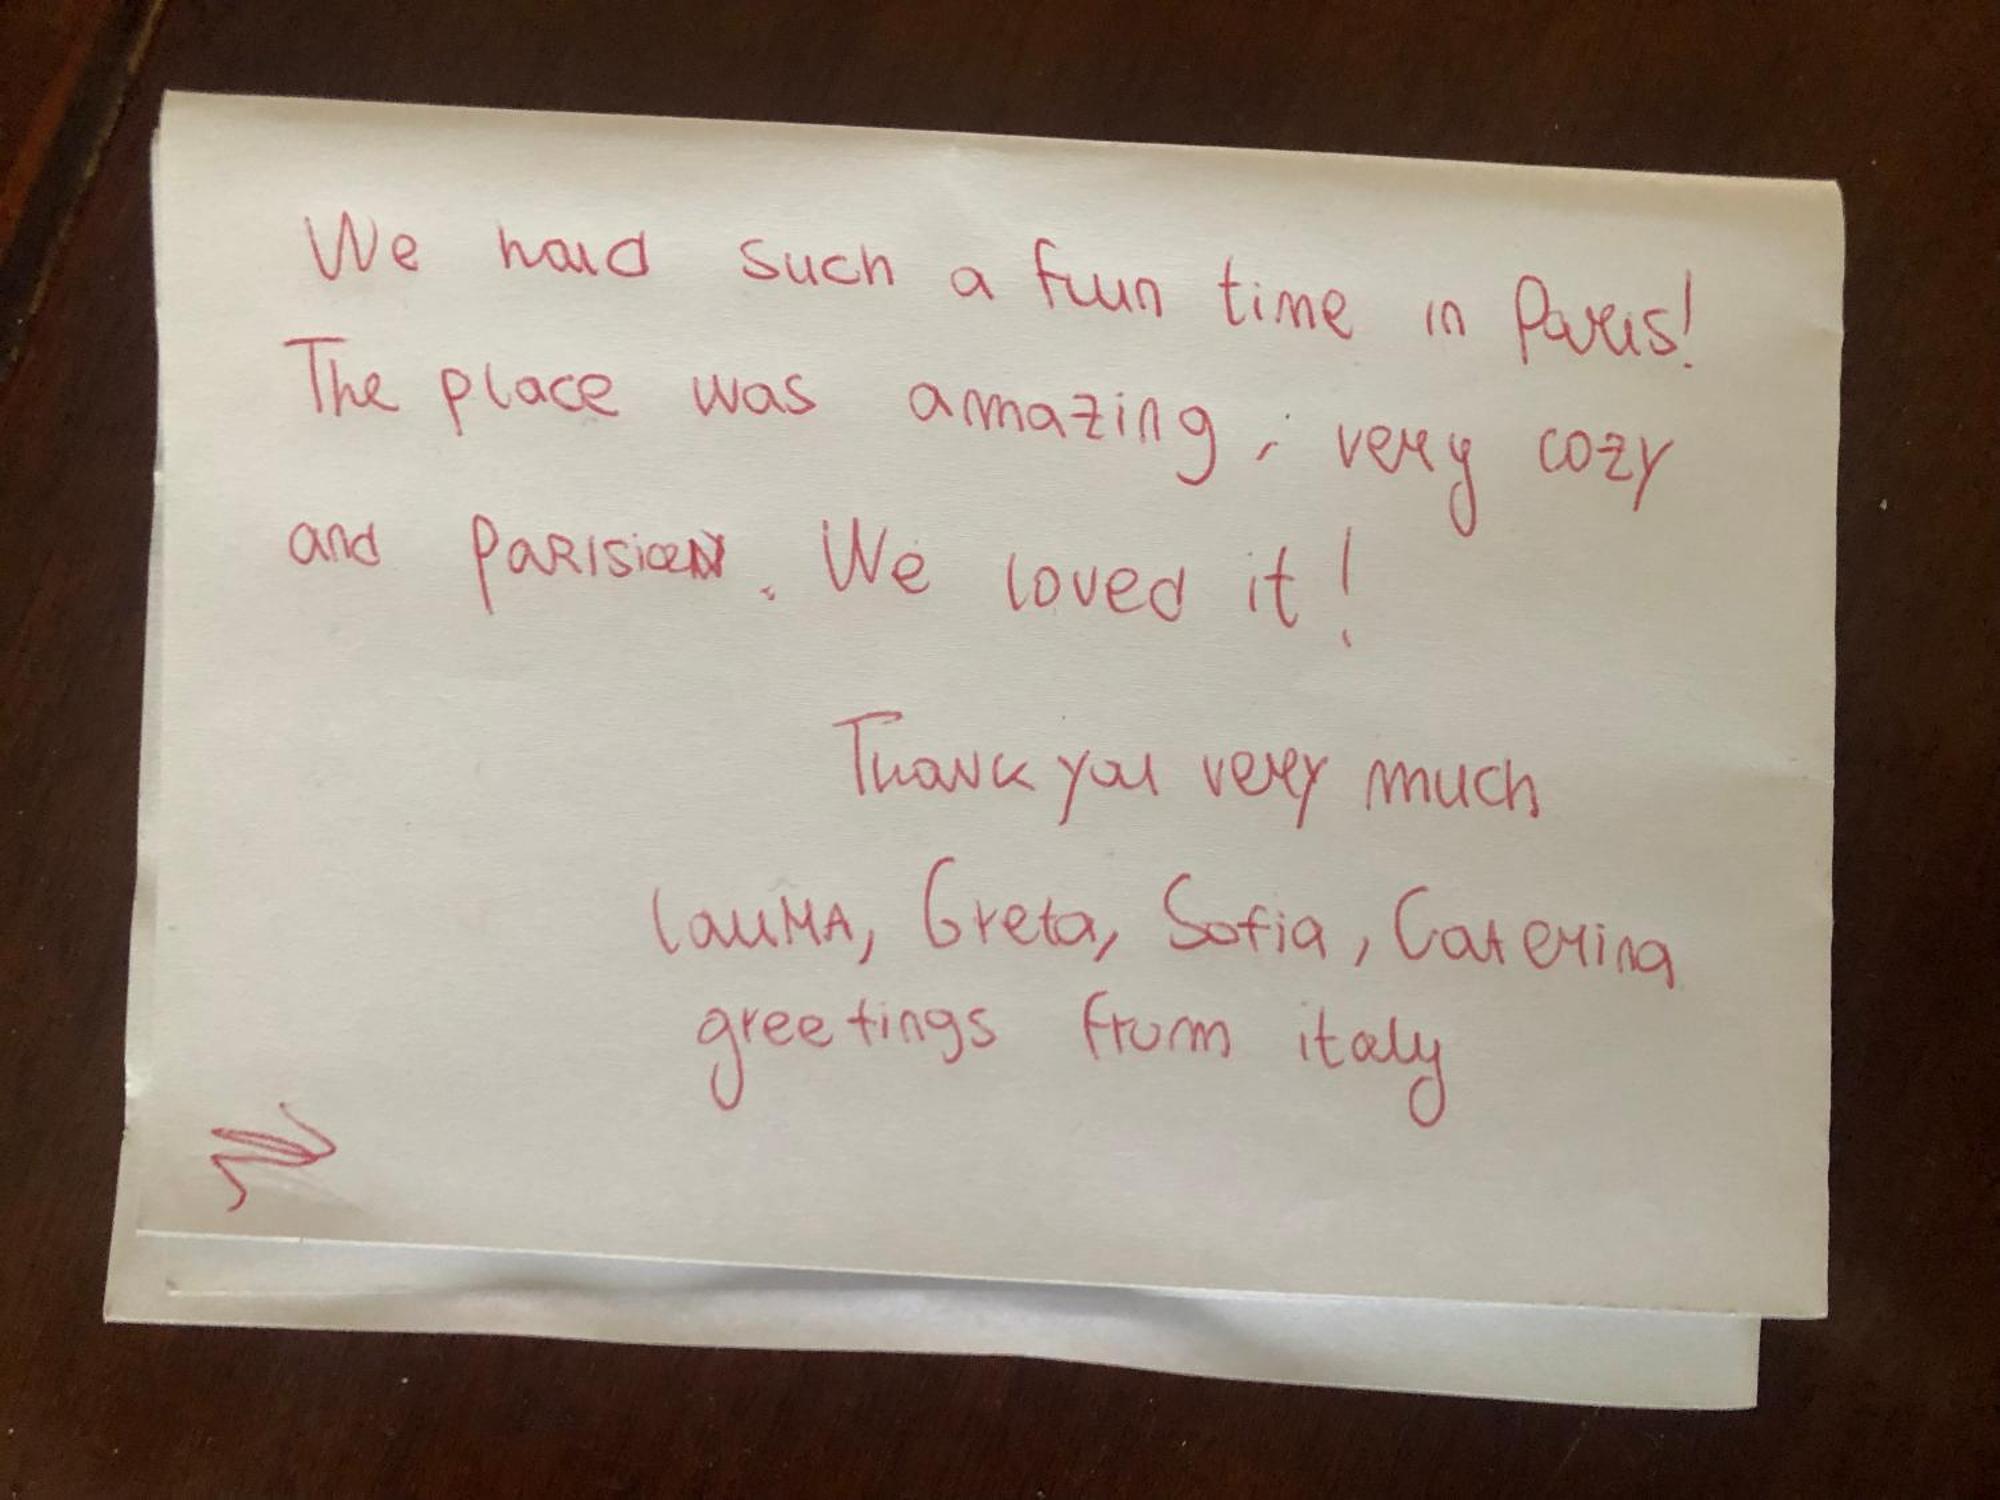 We had such a fun time in Paris!
The place was amazing, very cozy
and PARISiaN. We loved it!
Thank you very much
Laura, Greta, Sofia, Caterina
greetings from italy